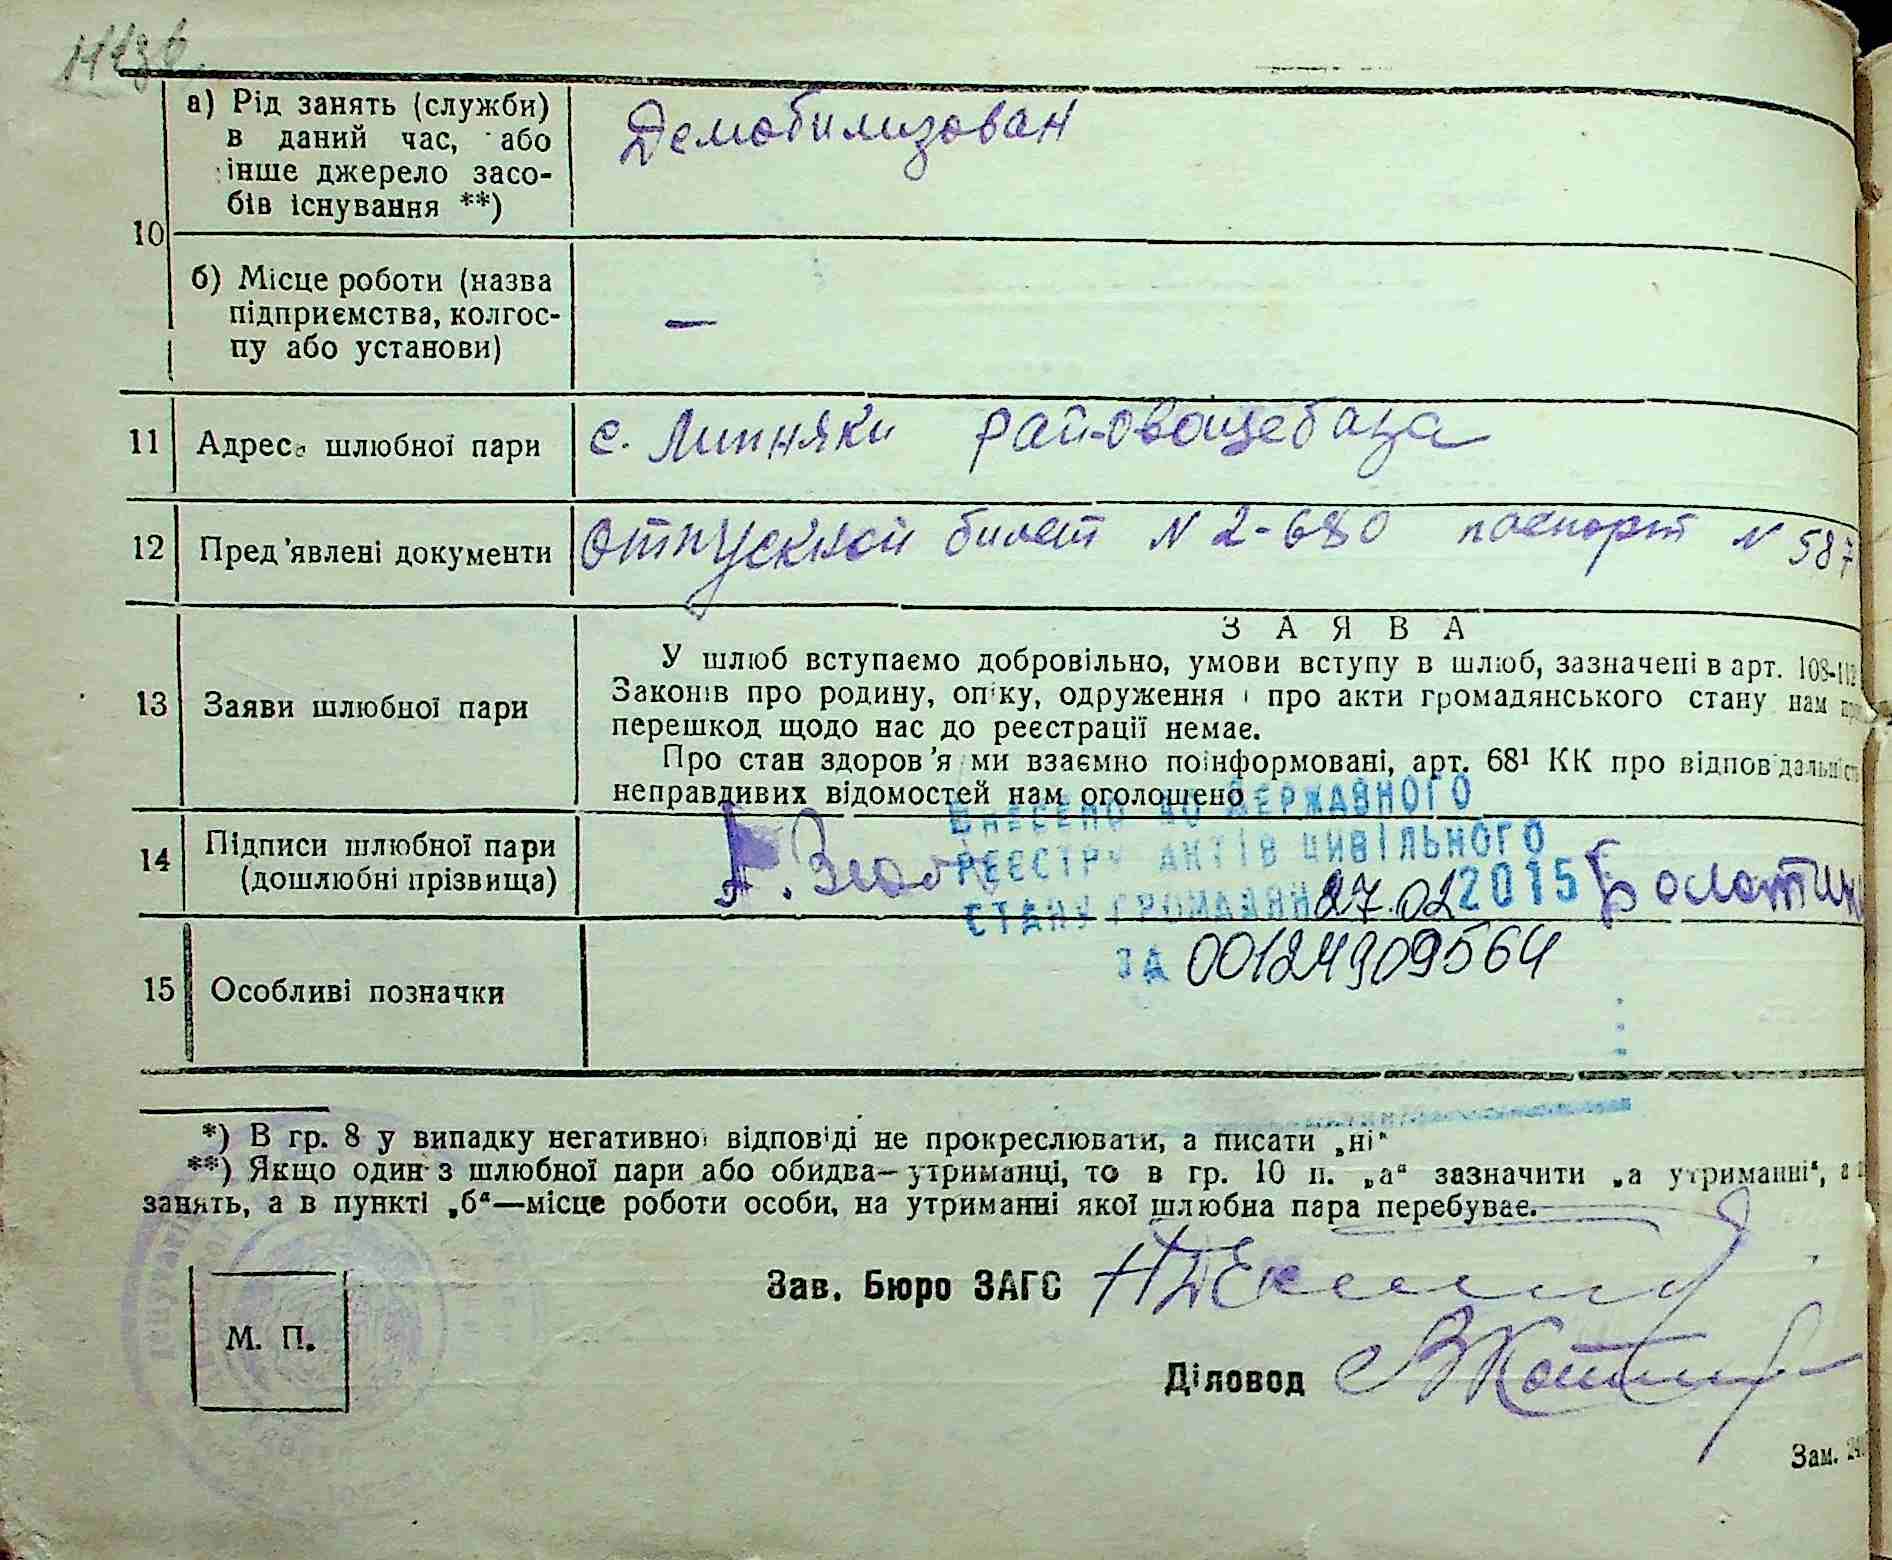 а) Рід занять (служби)
в даний час, або
інше джерело засо-
бів існування **)
Демобилизован
10
б) Місце роботи (назва
підприємства, колгос-
пу або установи)
—
11 Адрес шлюбної пари с. Липняки рай-овощебаза
12 Пред'явлені документи Отпускной билет N 2-680 паспорт N 587
ЗАЯВА
У шлюб вступаємо добровільно, умови вступу в шлюб, зазначені в арт. 108-112
13 Заяви шлюбної пари
Законів про родину, опіку, одруження і про акти громадянського стану нам
перешкод щодо нас до реєстрації немає.
Про стан здоров'я ми взаємно поінформовані, арт. 68¹ КК про відповідальність
неправдивих відомостей нам оголошено
ВНЕСЕНО ДО ДЕРЖАВНОГО
РЕЄСТРУ АКТІВ ЦИВІЛЬНОГО
СТАНУ ГРОМАДЯН 27.02 2015
ЗА 00124909564
14 Підписи шлюбної пари
(дошлюбні прізвища)
15 Особливі позначки
*) В гр. 8 у випадку негативної відповіді не прокреслювати, а писати „ні“
**) Якщо один з шлюбної пари або обидва—утриманці, то в гр. 10 п. „а“ зазначити „а утриманні“, а
занять, а в пункті „б“—місце роботи особи, на утриманні якої шлюбна пара перебуває.
Зав. Бюро ЗАГС
М. П.
Діловод
Зам.